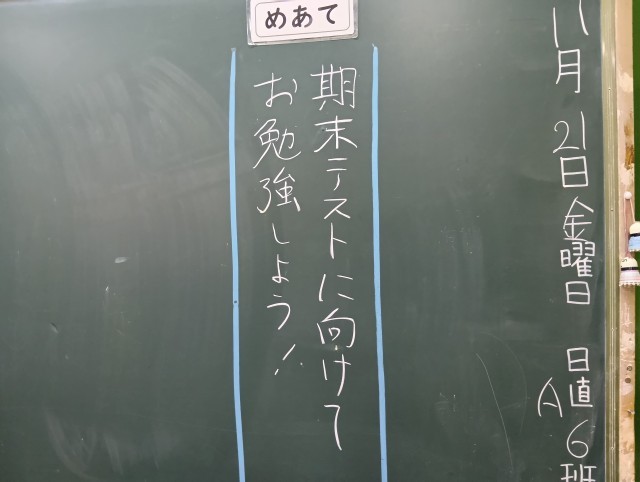 11月 21日 金曜日 日直 6班
A
めあて
期末テストに向けて
お勉強しよう!